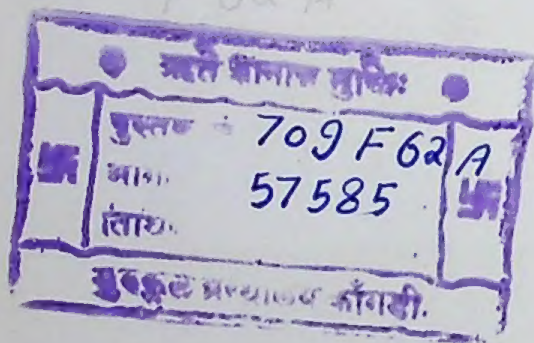 ऋते ज्ञानान्न मुक्तिः
पुस्तक 709 F 62 A
भाग 57585
तिथि
गुरुकुल ग्रन्थालय काँगड़ी.